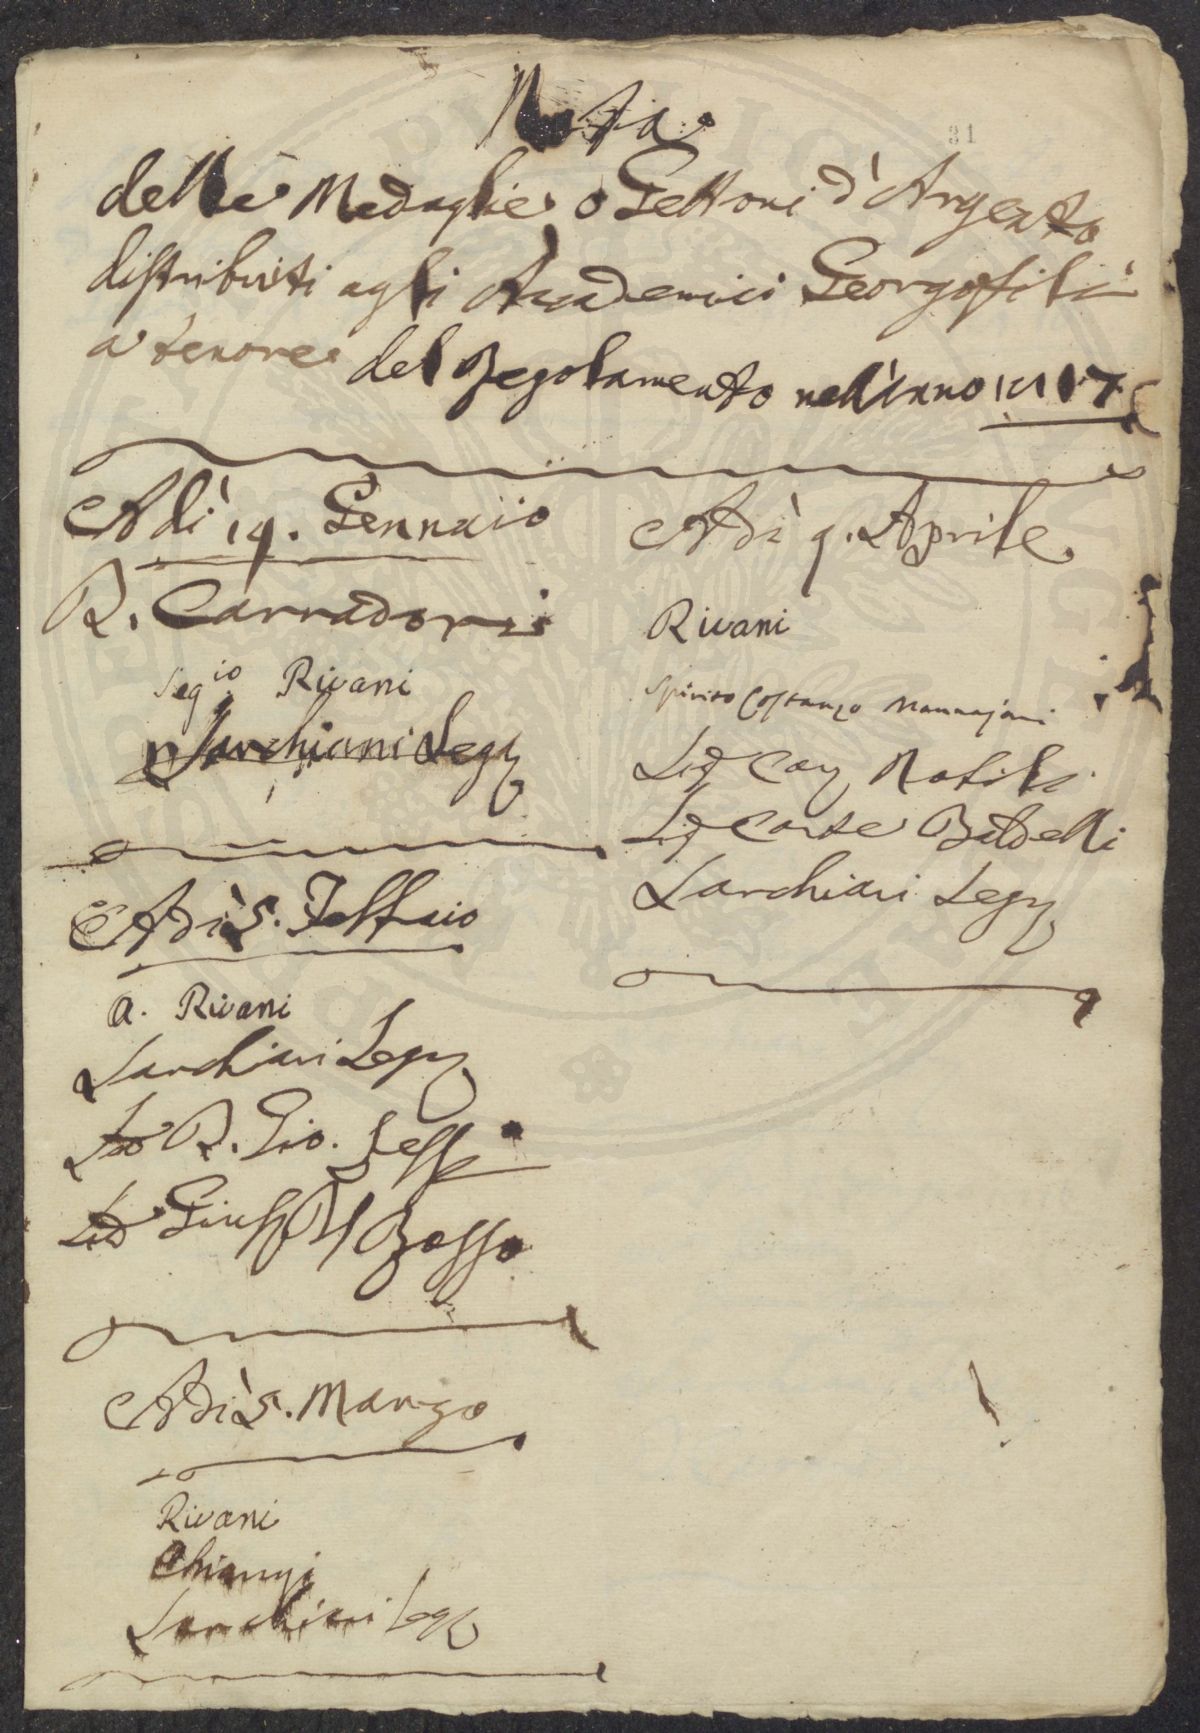 Nota
delle Medaglie o Gettoni d'Argento
distribuiti agli Accademici Georgofili
a tenore del Regolamento nell'Anno
31
Adì 14. Gennaio
R. Carradori
Seg.io Rivani
Sarchiani Segr
Adì 5. Febbraio
A. Rivani
Sarchiani Segr
R. Gio.
Giusep Del Rosso
Adì 5. Marzo
Rivani
Chiarugi
Sarchiani Segr
Adì 9. Aprile
Rivani
Spirito Costanzo Mannajoni
Sig Cav Nobili
Sig Conte Bardelli
Sarchiani Segr